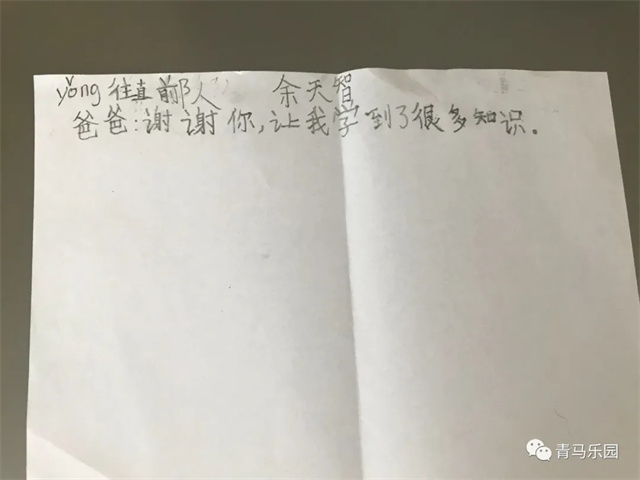 yǒng 往直前郎人 余天智
爸爸:谢谢你,让我学到了很多知识。
青马乐园